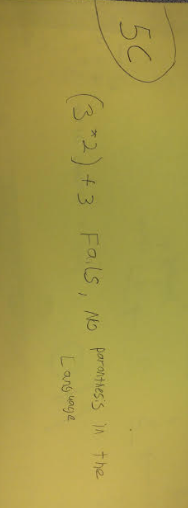 5C
(3*2) + 3 Fails, No paranthesis in the
Language